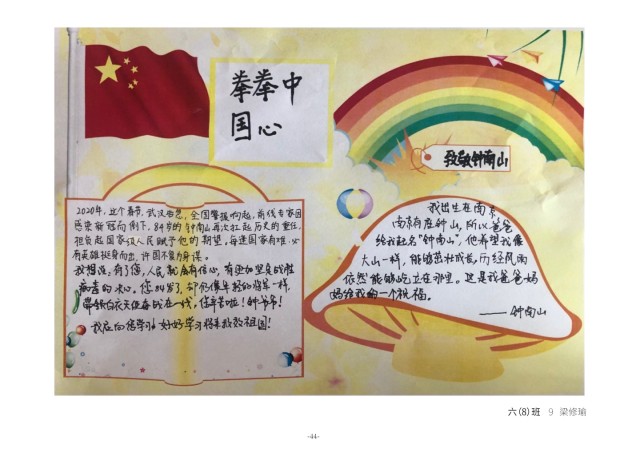 拳拳中
国心
致敬钟南山
2020年,这个春节,武汉告急,全国警报响起,前线专家因
感染新冠而倒下,84岁的钟南山再次扛起历史的重任,
担负起国家和人民赋予他的期望,每逢国家有难,必
有英雄挺身而出,许国不复为身谋。
我想说:有了您,人民就有信心,有更加坚定战胜
病毒的决心。您84岁了,却仍像年轻的将军一样,
带领白衣天使奋战在一线,您辛苦啦!钟爷爷!
我应向您学习!好好学习将来报效祖国!
我出生在南京
南京有座钟山,所以爸爸
给我起名“钟南山”,他希望我像
大山一样,能够茁壮成长,历经风雨
依然能够屹立在那里。这是我爸爸妈
妈给我的一个祝福。
——钟南山
六(8)班 9 梁修瑜
-44-